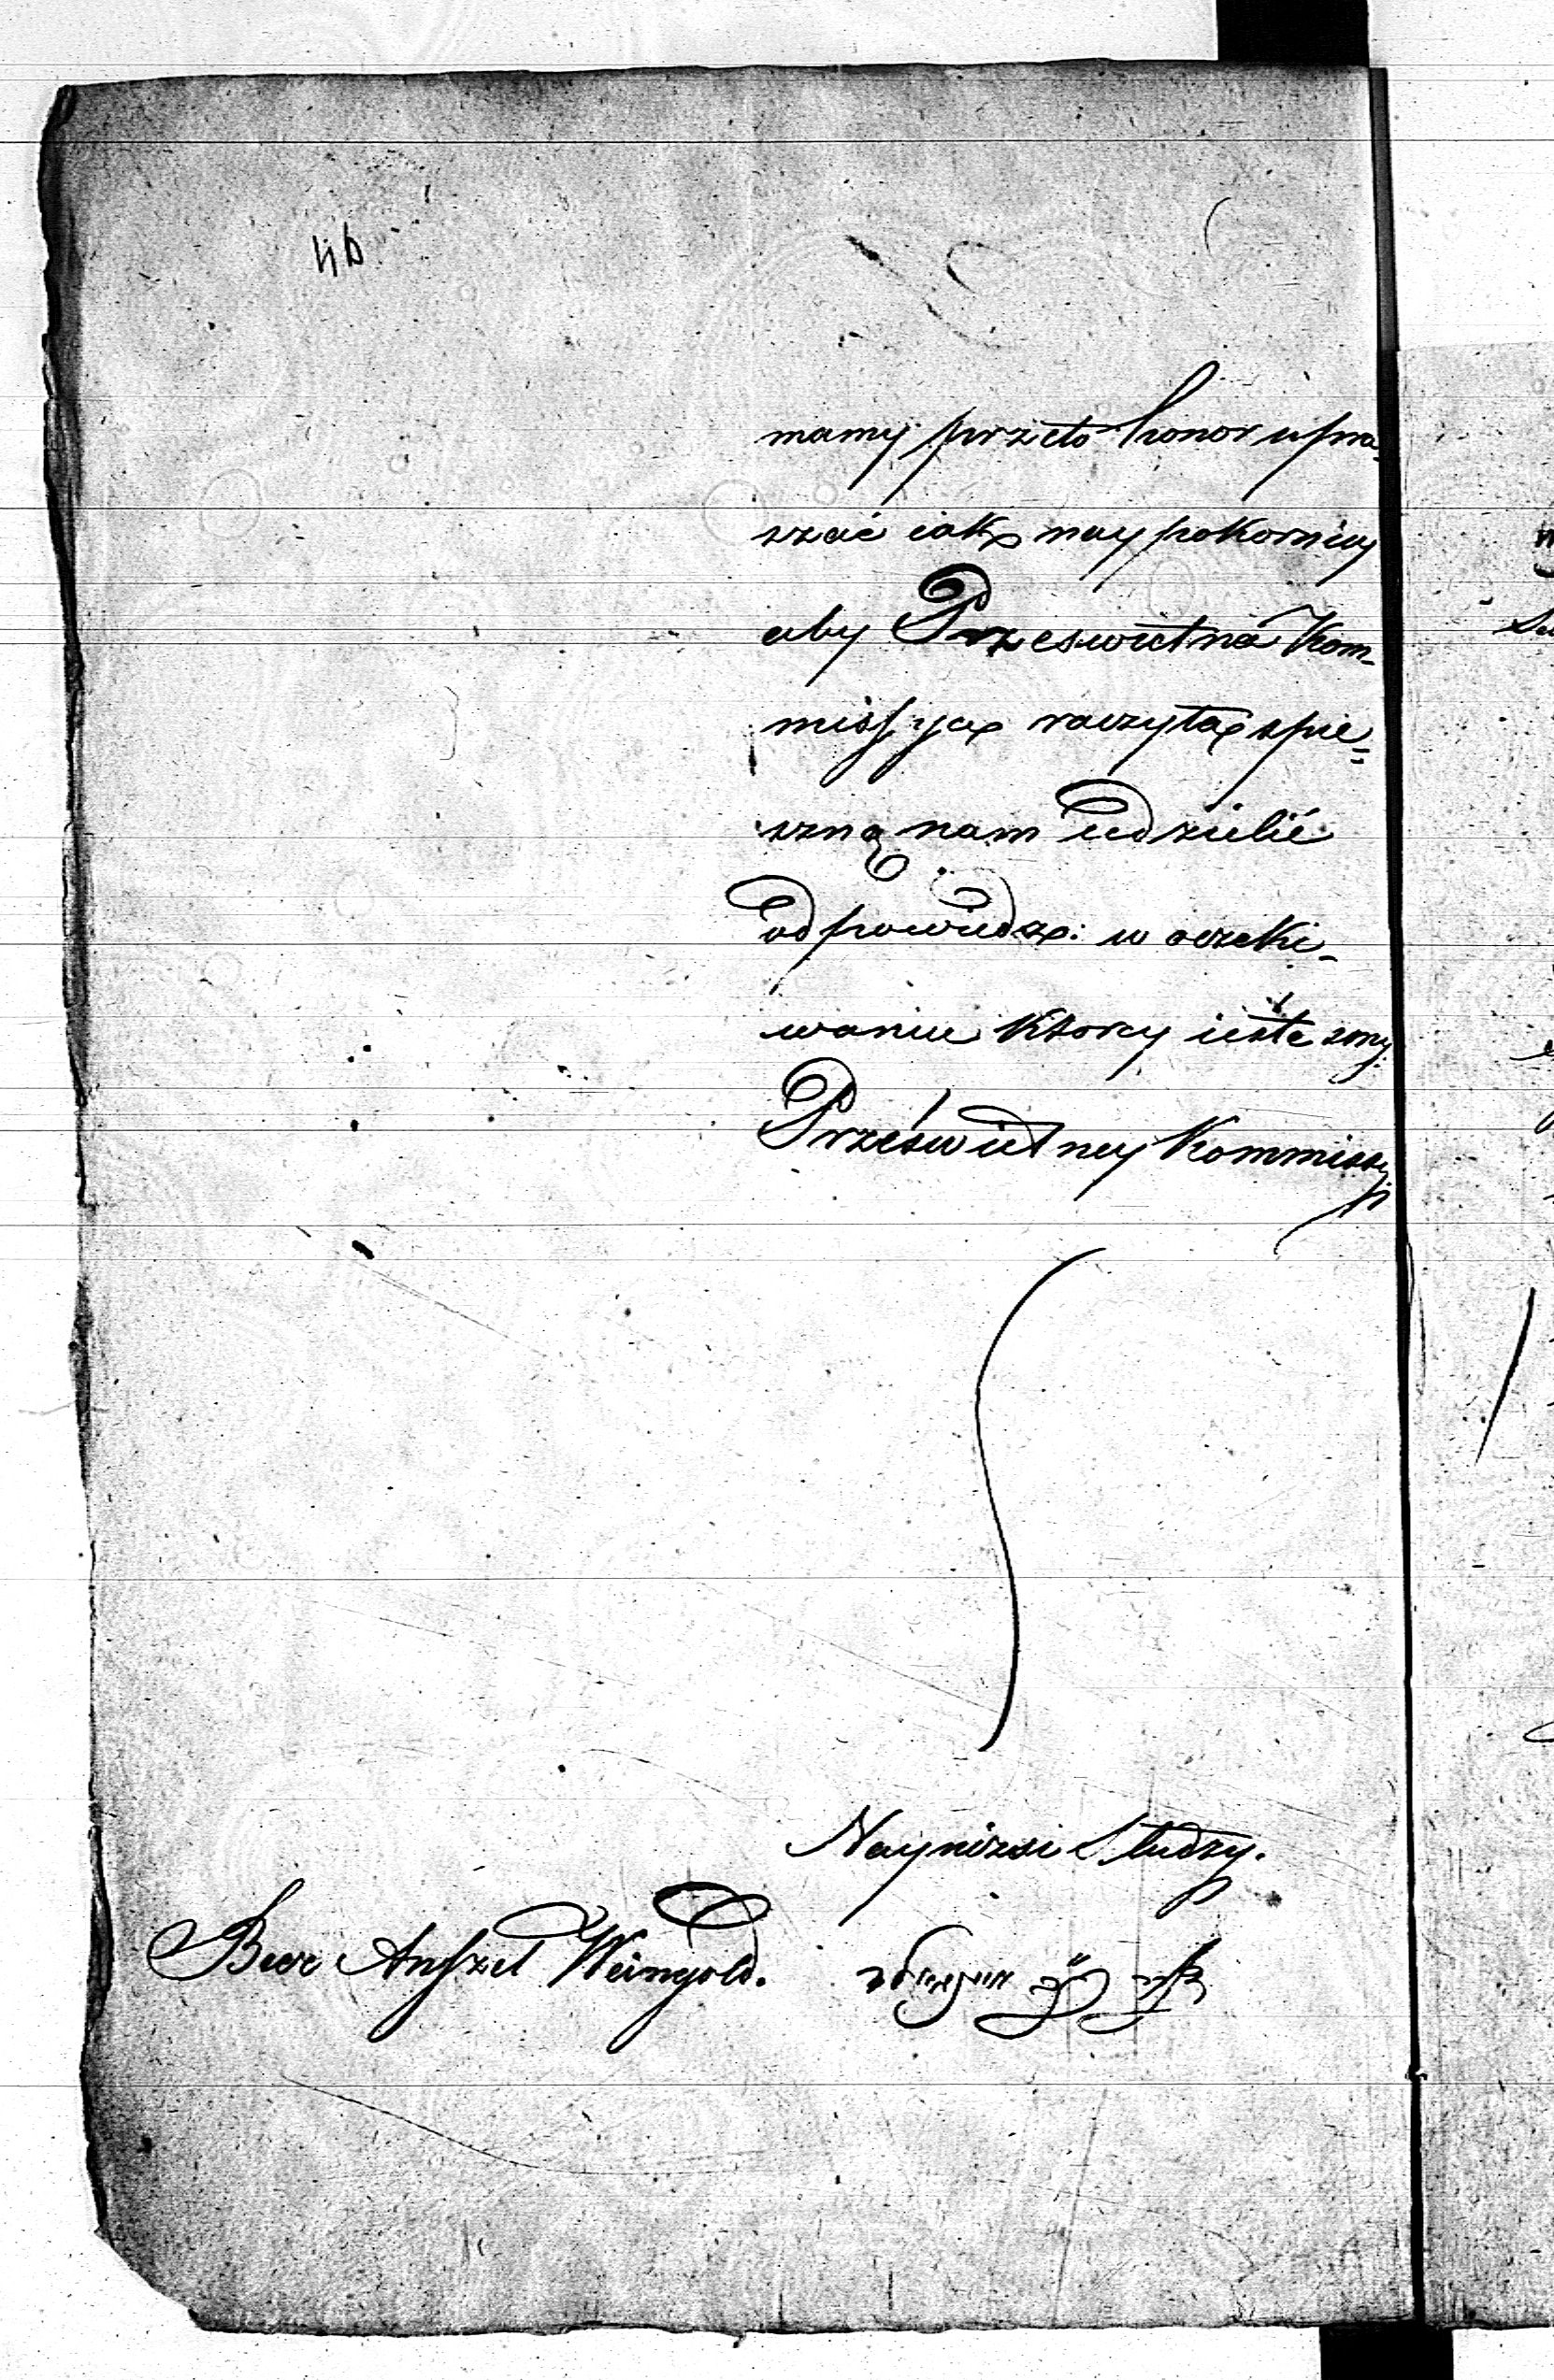 mamy przeto honor upra-
szać iak naypokorniey
aby Prześwietna Kom-
missya raczyła spie=
szną nam udzielić
odpowiedz: w oczeki-
waniu ktorey iesteśmy
Prześwietney Kommissyi
Nayniżsi Słudzy.
Beer Anszel Weingold.